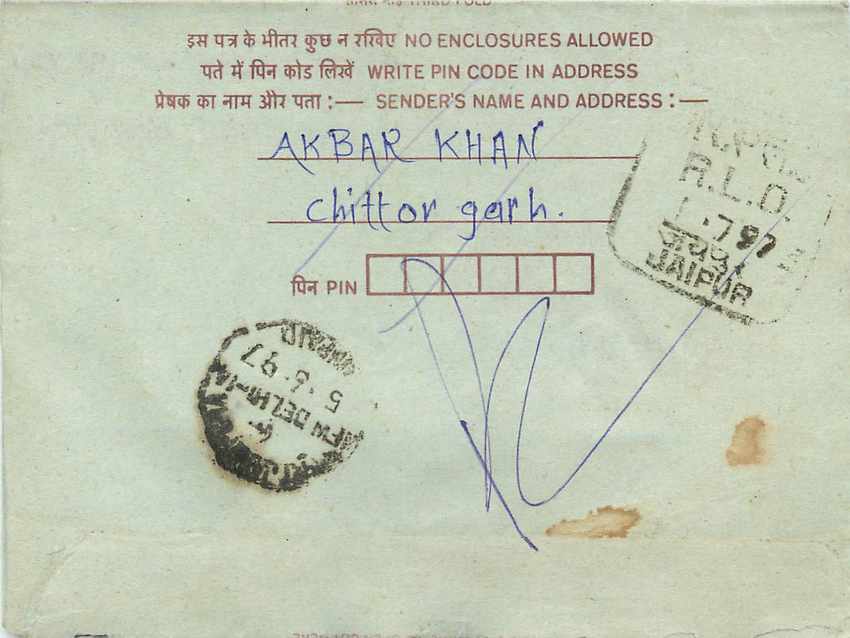 THIRD FOLD
इस पत्र के भीतर कुछ न रखिए NO ENCLOSURES ALLOWED
पते में पिन कोड लिखें WRITE PIN CODE IN ADDRESS
प्रेषक का नाम और पता :— SENDER'S NAME AND ADDRESS :—
AKBAR KHAN
Chittor garh.
R.L.O.
.7 97
जयपुर
JAIPUR
पिन PIN
5.6.97
NEW DELHI